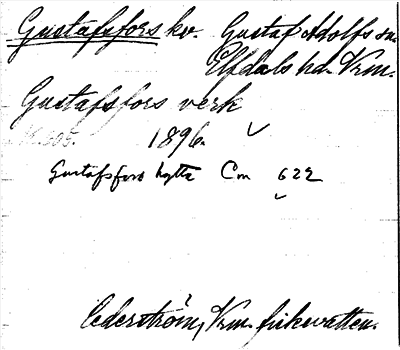 Gustafsfors kv. Gustaf Adolfs sn.
Elfdals hd. Vrm.
Gustafsfors verk
1896.
Gustafsfors hytta Cm 622
Cederström, Vrm. fiskevatten.